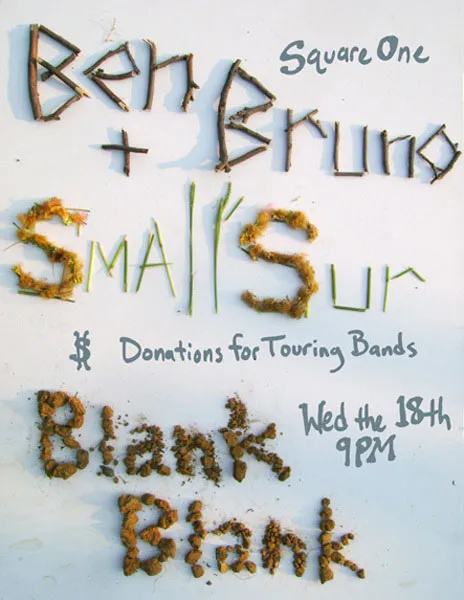 Ben
Square One
+ Bruno
Small Sur
$ Donations for Touring Bands
Blank
Wed the 18th
9PM
Blank